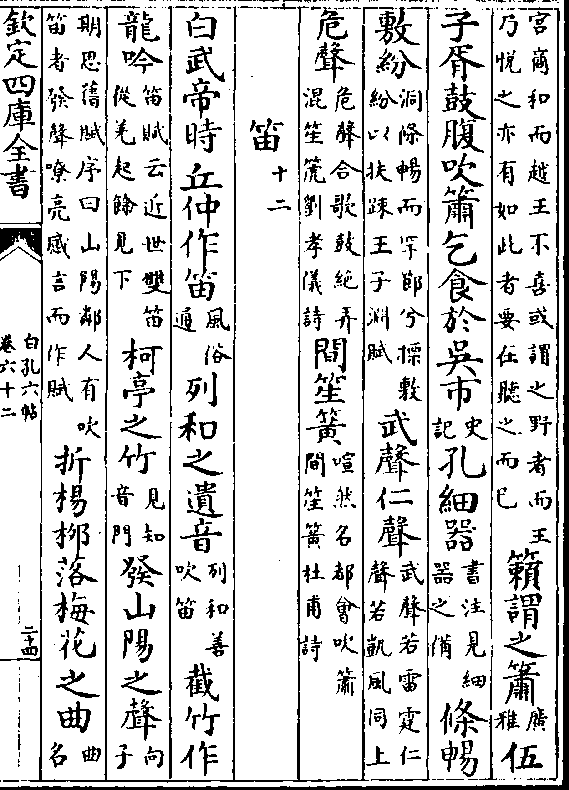 宮商和而越王不喜或謂之野者而王乃悦之亦有如此者要在聽之而已籟謂之簫廣雅伍
子胥鼓腹吹簫乞食於吳市史記孔細器書注見細器之備條暢
敷紛洞條暢而罕節兮摽敷紛以扶踈王子淵賦武聲仁聲武聲若雷霆仁聲若凱風同上
危聲危聲合歌鼓絕弄混笙箎劉孝儀詩間笙簧喧然名都會吹簫間笙簧杜甫詩
笛十二
白武帝時丘仲作笛風俗通列和之遺音列和善吹笛截竹作
龍吟笛賦云近世雙笛從羌起餘見下柯亭之竹見知音門發山陽之聲向子
期思舊賦序曰山陽鄰人有吹笛者發聲嘹亮感言而作賦折楊栁落梅花之曲曲名
欽定四庫全書
白孔六帖
卷六十二
二十四